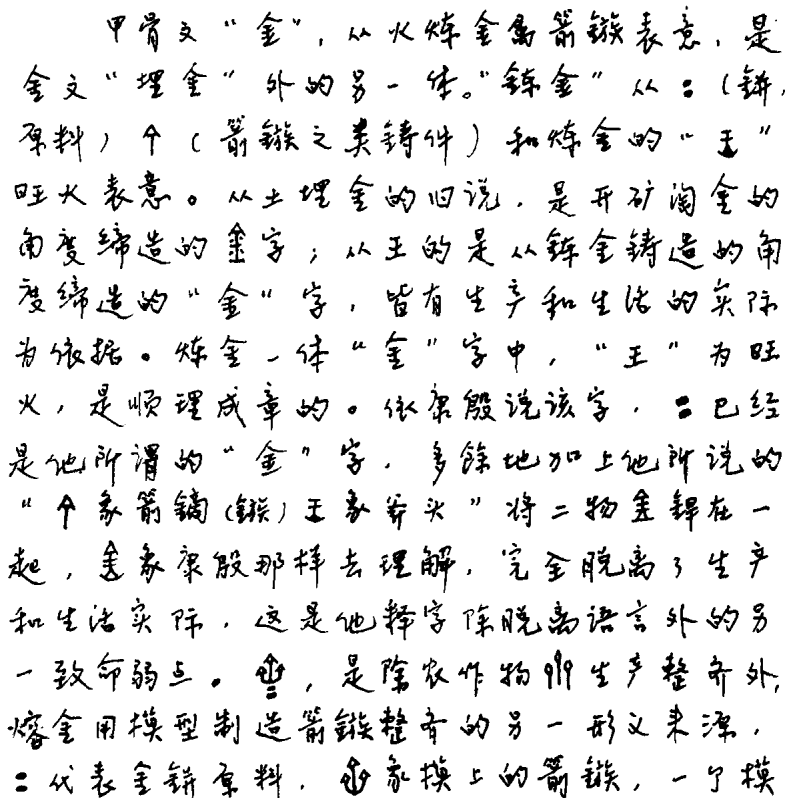 甲骨文“金”，从火炼金属箭镞表意，是
金文“埋金”外的另一体。“鍊金”从：（鉼，
原料）个（箭镞之类铸件）和炼金的“王”
旺火表意。从土埋金的旧说，是开矿淘金的
角度缔造的金字；从王的是从鍊金铸造的角
度缔造的“金”字，皆有生产和生活的实际
为依据。炼金一体“金”字中，“王”为旺
火，是顺理成章的。依康殷说该字，：已经
是他所谓的“金”字，多馀地加上他所说的
“个象箭镝（镞）王象斧头”将二物金銲在一
起，金象康殷那样去理解，完全脱离了生产
和生活实际，这是他释字除脱离语言外的另
一致命弱点。，是除农作物生产整齐外，
熔金用模型制造箭镞整齐的另一形义来源，
：代表金鉼原料，象模上的箭镞，一个模